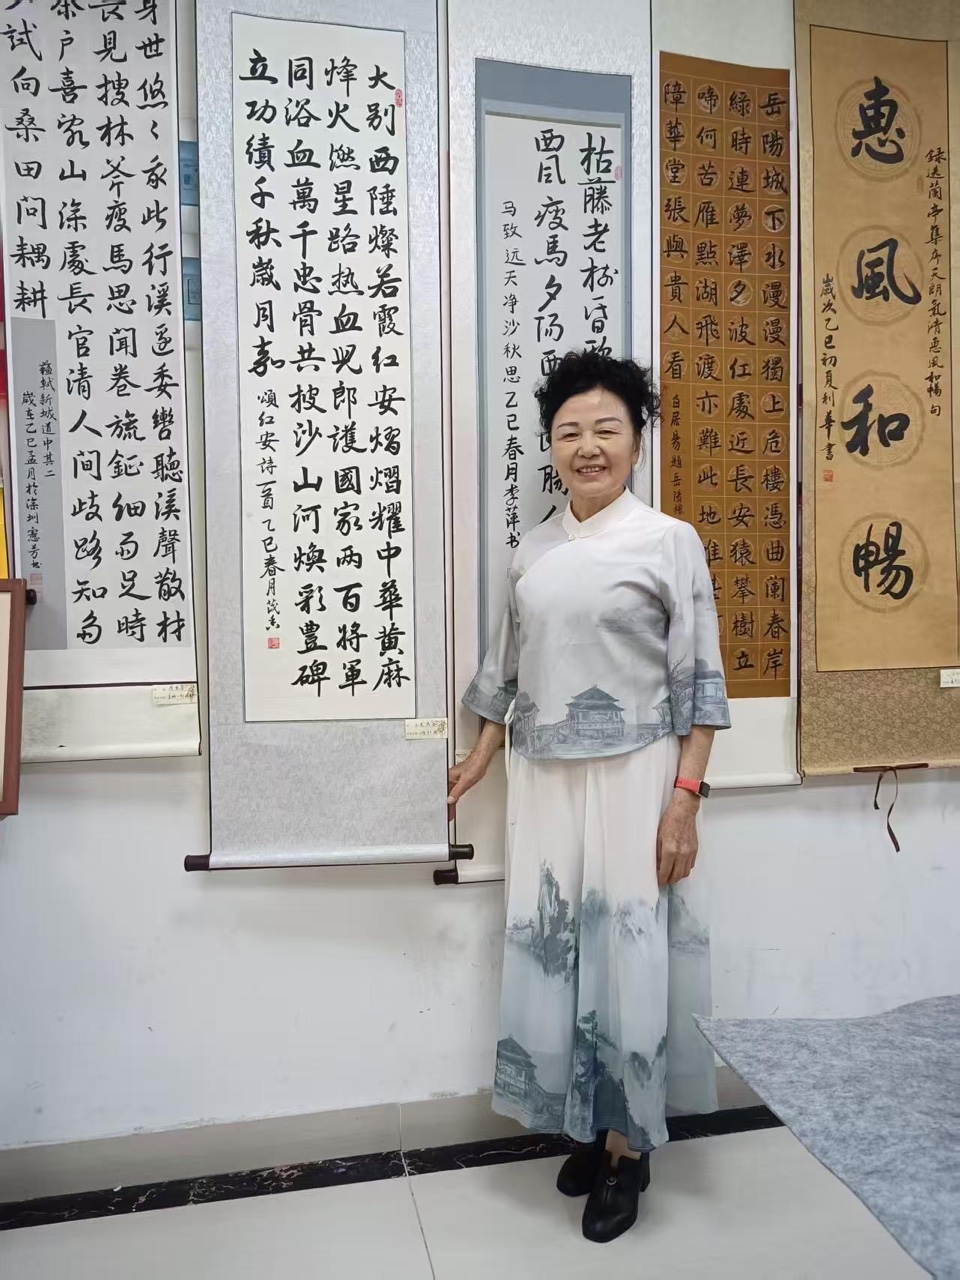 身世悠〻我此行溪邊委轡聽溪聲散材
畏見搜林斧疲馬思聞卷旆鉦細雨足時
茶戶喜乱山深處長官清人间歧路知多
少試向桑田问耦耕
蘇軾新城道中其二
歲在乙巳孟月於深圳惠芳书
大别西陲燦若霞红安熠熠耀中華黄麻
烽火燃星路热血児郎護國家两百將軍
同浴血萬千忠骨共披沙山河焕彩豊碑
立功績千秋歲月嘉
頌红安诗一首 乙巳春月茂香
枯藤老树昏
西風瘦馬夕陽西
马致远天净沙秋思乙巳春月李萍书
岳陽城下水漫漫獨上危樓憑曲阑春岸
緑時連夢澤夕波红處近長安猿攀樹立
啼何苦雁點湖飛渡亦難此地唯
障華堂張與貴人看
白居易题岳陽樓
録选蘭亭集序天朗氣清惠風和暢句
惠風和暢
歲次乙巳初夏利華書